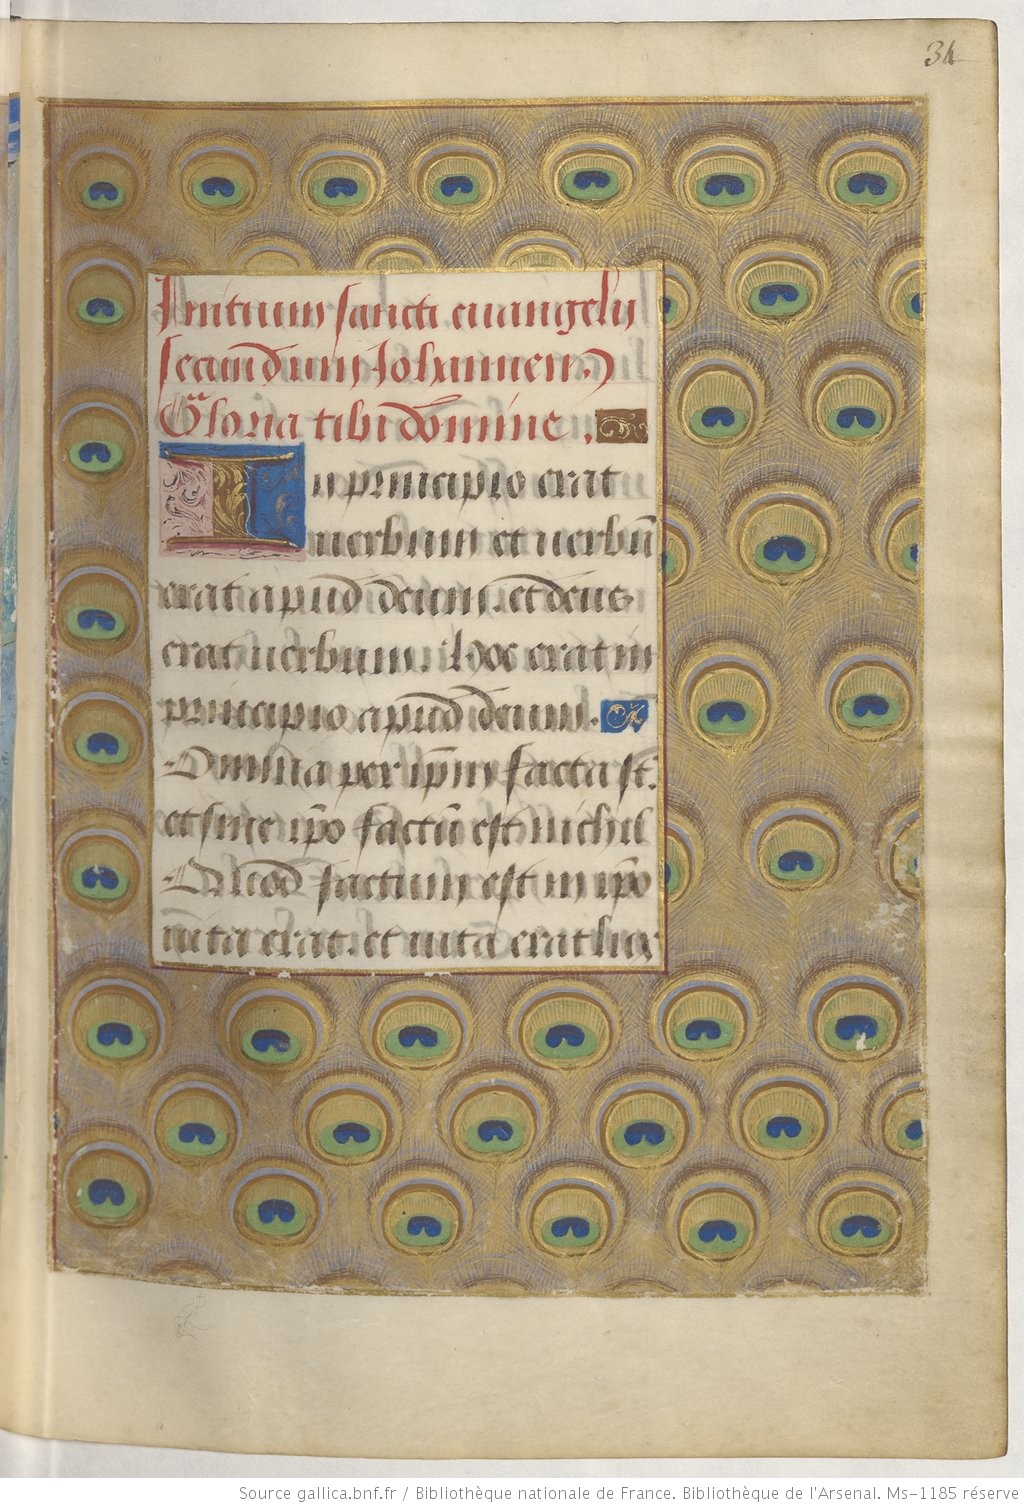 34
Initium sancti euangelij
secundum Iohannem
Gloria tibi domine .
In principio erat
uerbum et uerbū
erat apud deum . et deus
erat uerbum . Hoc erat in
principio apud deum .
Omnia per ip̄m facta st̄ .
et sine ip̄o factū est nichil
Quod factum est in ip̄o
uita erat . et uita erat lux
Source gallica.bnf.fr / Bibliothèque nationale de France. Bibliothèque de l'Arsenal. Ms-1185 réserve